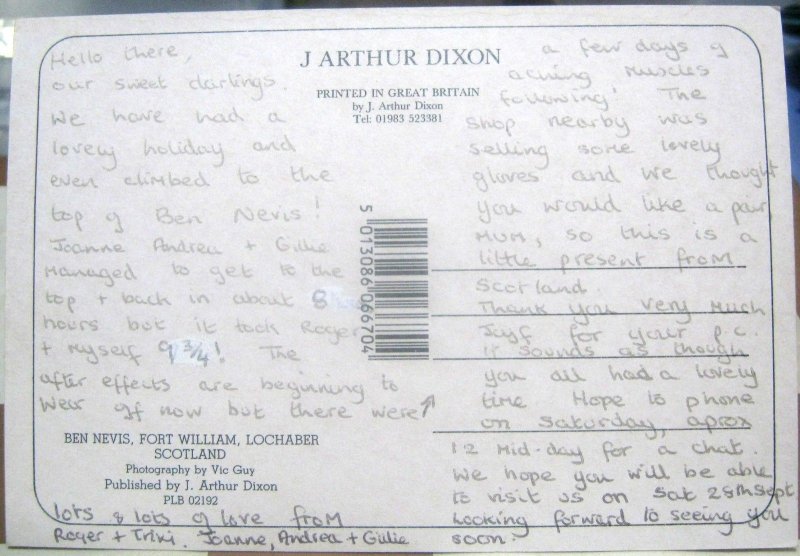 Hello there,
our sweet darlings.
We have had a
lovely holiday and
even climbed to the
top of Ben Nevis!
Joanne Andrea + Gillie
managed to get to the
top + back in about 8
hours but it took Roger
+ myself 9 3/4! The
after effects are beginning to
wear off now but there were ↑
J ARTHUR DIXON
PRINTED IN GREAT BRITAIN
by J. Arthur Dixon
Tel: 01983 523381
5 013086 066704
a few days of
aching muscles
following! The
shop nearby was
selling some lovely
gloves and we thought
you would like a pair,
Mum, so this is a
little present from
Scotland.
Thank you very much
for your p.c.
it sounds as though
you all had a lovely
time Hope to phone
on Saturday, aprox
12 mid-day for a chat.
We hope you will be able
to visit us on Sat 28th Sept
Looking forward to seeing you
soon.
BEN NEVIS, FORT WILLIAM, LOCHABER
SCOTLAND
Photography by Vic Guy
Published by J. Arthur Dixon
PLB 02192
lots & lots of love from
Roger + Trixi. Joanne, Andrea + Gillie